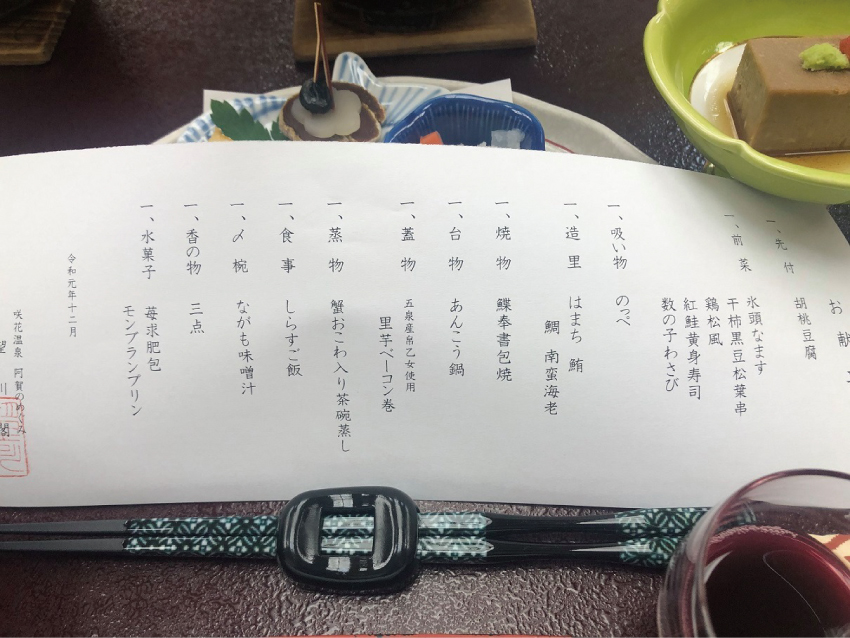 お献立
一、先付 胡桃豆腐
一、前菜 氷頭なます
干柿黒豆松葉串
鶏松風
紅鮭黄身寿司
数の子わさび
一、吸い物 のっぺ
一、造里 はまち 鮪
鯛 南蛮海老
一、焼物 鰈奉書包焼
一、台物 あんこう鍋
一、蓋物 五泉産帛乙女使用
里芋ベーコン巻
一、蒸物 蟹おこわ入り茶碗蒸し
一、食事 しらすご飯
一、〆椀 ながも味噌汁
一、香の物 三点
一、水菓子 苺求肥包
モンブランプリン
令和元年十二月
咲花温泉 阿賀のめぐみ
望川閣